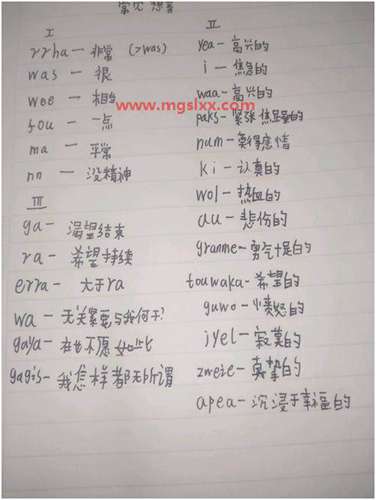 常见想音
I
rrha — 非常 (>was)
was — 很
wee — 相当
fou — 一点
ma — 平常
nn — 没精神
III
ga — 渴望结束
ra — 希望持续
erra — 大于ra
wa — 无关紧要与我何干?
gaya — 在也不愿如此
gagis — 我怎样都无所谓
II
yea — 高兴的
i — 焦急的
waa — 高兴的
paks — 紧张焦
num — 莫得感情
ki — 认真的
wol — 热血的
au — 悲伤的
granme — 勇气十足的
touwaka — 希望的
guwo — 愤怒的
iyel — 寂寞的
zweie — 真挚的
apea — 沉浸于幸福的
www.mgslxx.com